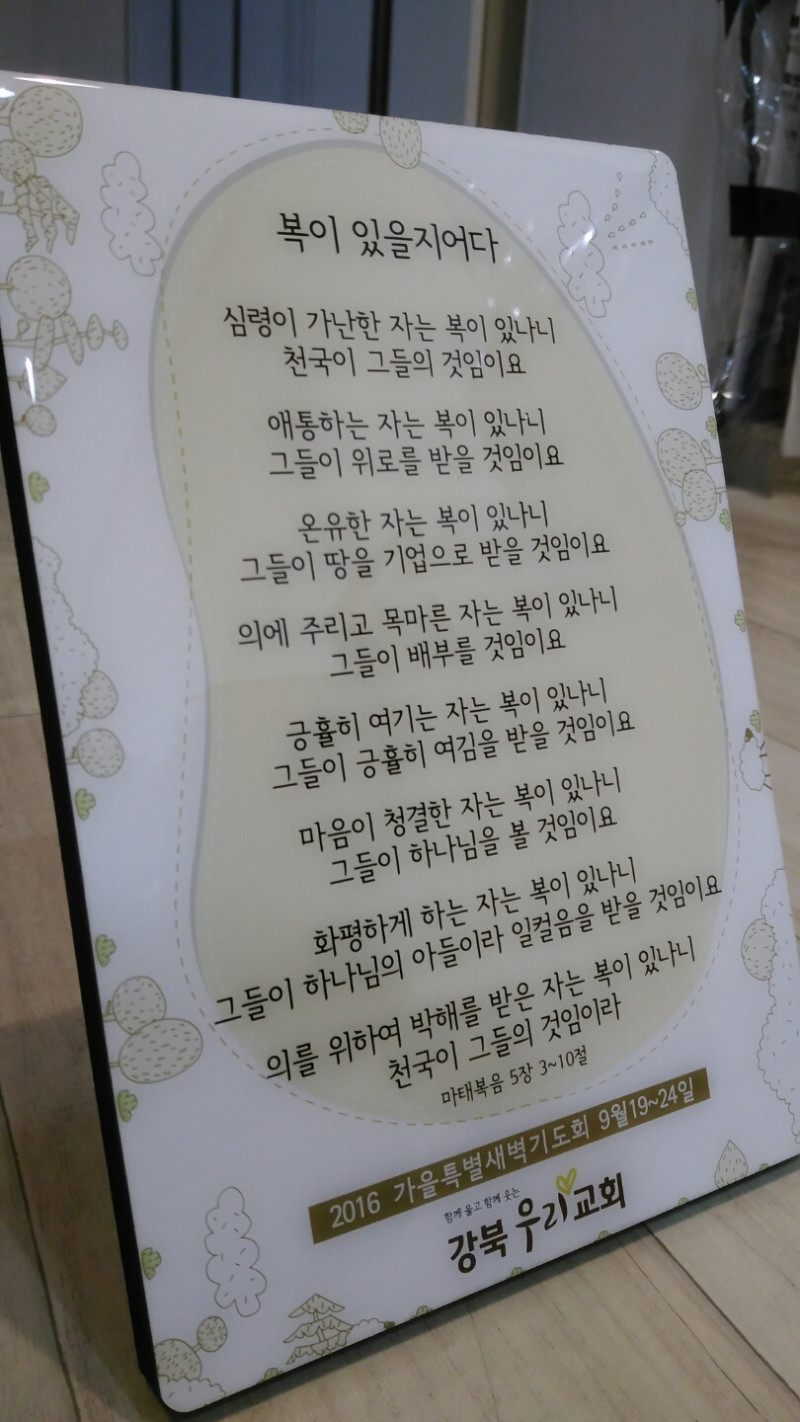 복이 있을지어다
심령이 가난한 자는 복이 있나니
천국이 그들의 것임이요
애통하는 자는 복이 있나니
그들이 위로를 받을 것임이요
온유한 자는 복이 있나니
그들이 땅을 기업으로 받을 것임이요
의에 주리고 목마른 자는 복이 있나니
그들이 배부를 것임이요
긍휼히 여기는 자는 복이 있나니
그들이 긍휼히 여김을 받을 것임이요
마음이 청결한 자는 복이 있나니
그들이 하나님을 볼 것임이요
화평하게 하는 자는 복이 있나니
그들이 하나님의 아들이라 일컬음을 받을 것임이요
의를 위하여 박해를 받은 자는 복이 있나니
천국이 그들의 것임이라
마태복음 5장 3~10절
2016 가을특별새벽기도회 9월19~24일
함께 울고 함께 웃는
강북 우리교회